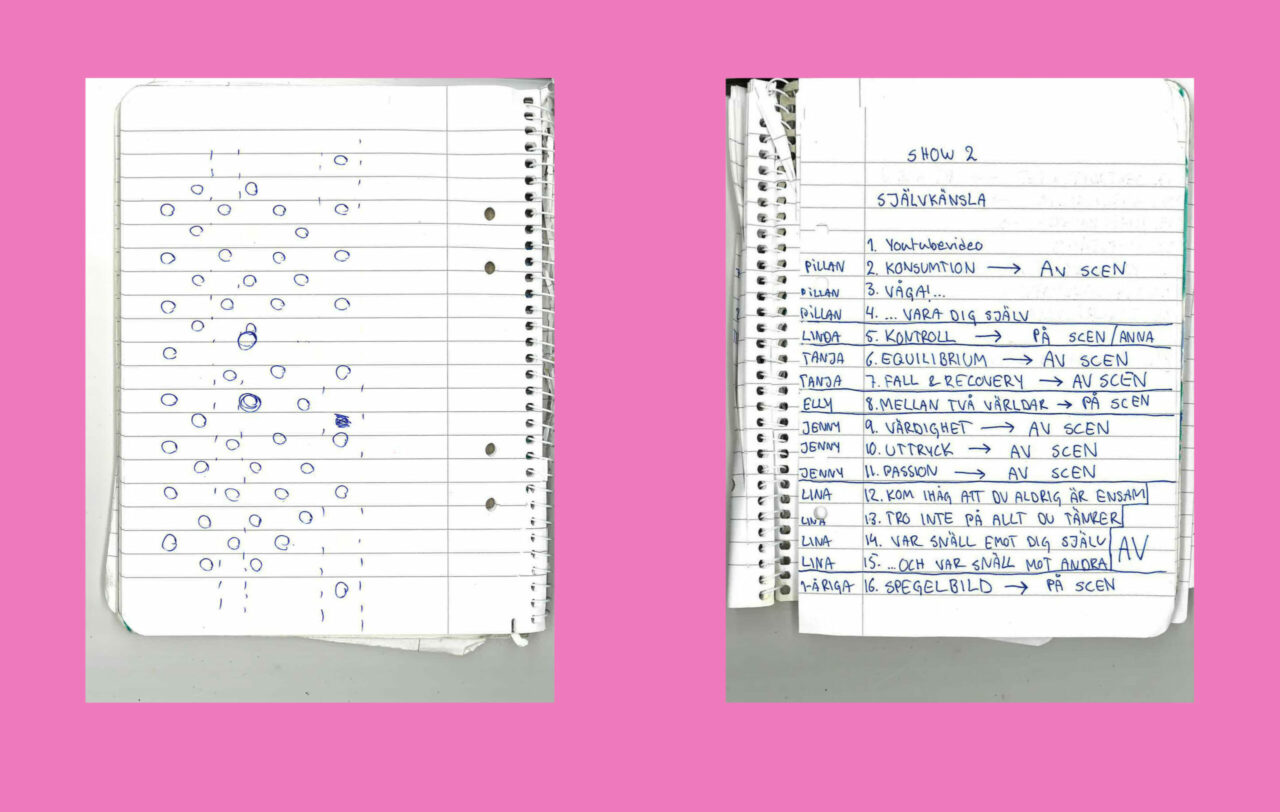 SHOW 2
SJÄLVKÄNSLA
1. Youtubevideo
PILLAN 2. KONSUMTION → AV SCEN
PILLAN 3. VÅGA!...
PILLAN 4. ... VARA DIG SJÄLV
LINDA 5. KONTROLL → PÅ SCEN/ANNA
TANJA 6. EQUILIBRIUM → AV SCEN
TANJA 7. FALL & RECOVERY → AV SCEN
ELLY 8. MELLAN TVÅ VÄRLDAR → PÅ SCEN
JENNY 9. VÄRDIGHET → AV SCEN
JENNY 10. UTTRYCK → AV SCEN
JENNY 11. PASSION → AV SCEN
LINA 12. KOM IHÅG ATT DU ALDRIG ÄR ENSAM
LINA 13. TRO INTE PÅ ALLT DU TÄNKER
LINA 14. VAR SNÄLL EMOT DIG SJÄLV AV
LINA 15. ...OCH VAR SNÄLL MOT ANDRA
1-ÅRIGA 16. SPEGELBILD → PÅ SCEN